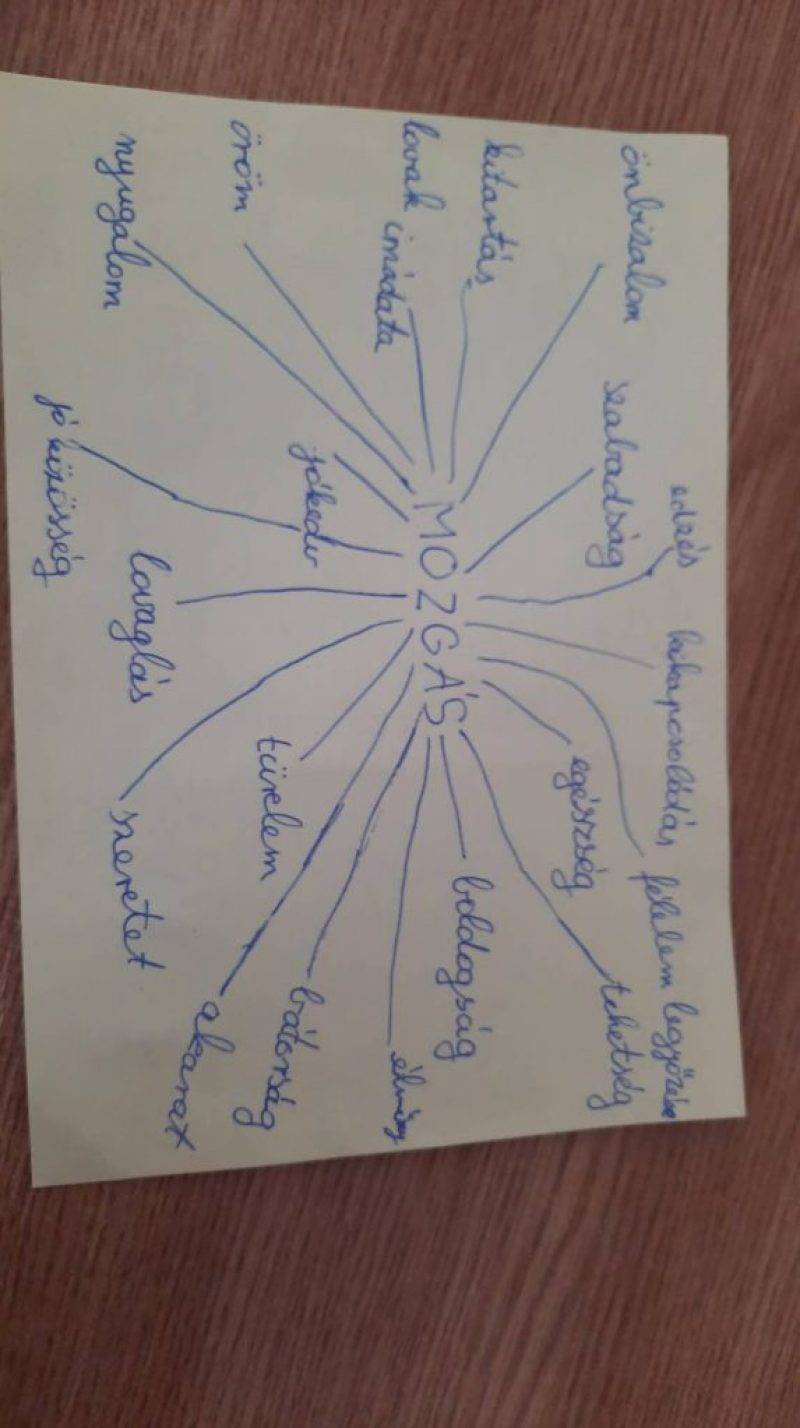 edzés
kikapcsolódás
félelem legyőzése
önbizalom
szabadság
egészség
tehetség
kitartás
boldogság
lovak imádata
MOZGÁS
élmény
jókedv
öröm
türelem
bátorság
nyugalom
lovaglás
szeretet
akarat
jó közösség